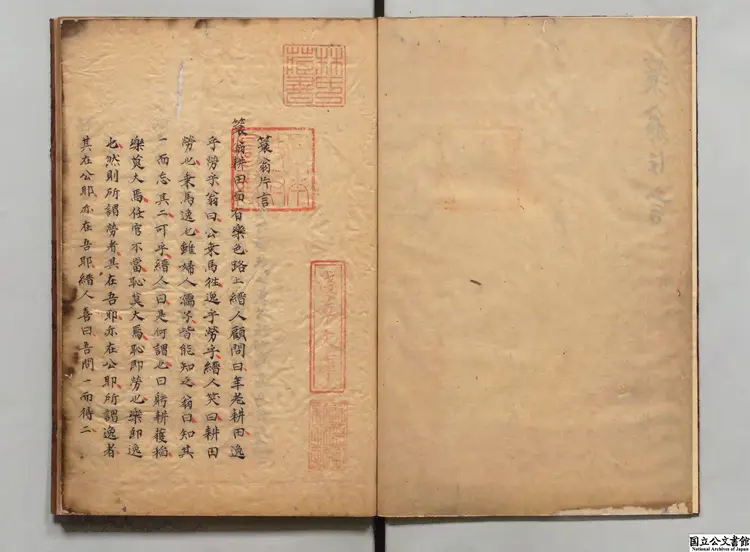 簑翁片言
簑翁耕田而有樂色路上縉人顧問曰年老耕田逸
乎勞乎翁曰公乘馬徃逸乎勞乎縉人笑曰耕田
勞也乘馬逸也雖婦人孺子皆能知之翁曰知其
一而忘其二可乎縉人曰是何謂也曰躬耕獲稲
樂莫大焉任官不當恥莫大焉恥即勞也樂即逸
也然則所謂勞者其在吾耶亦在公耶所謂逸者
其在公耶亦在吾耶縉人喜曰吾問一而得二
国立公文書館
National Archives of Japan